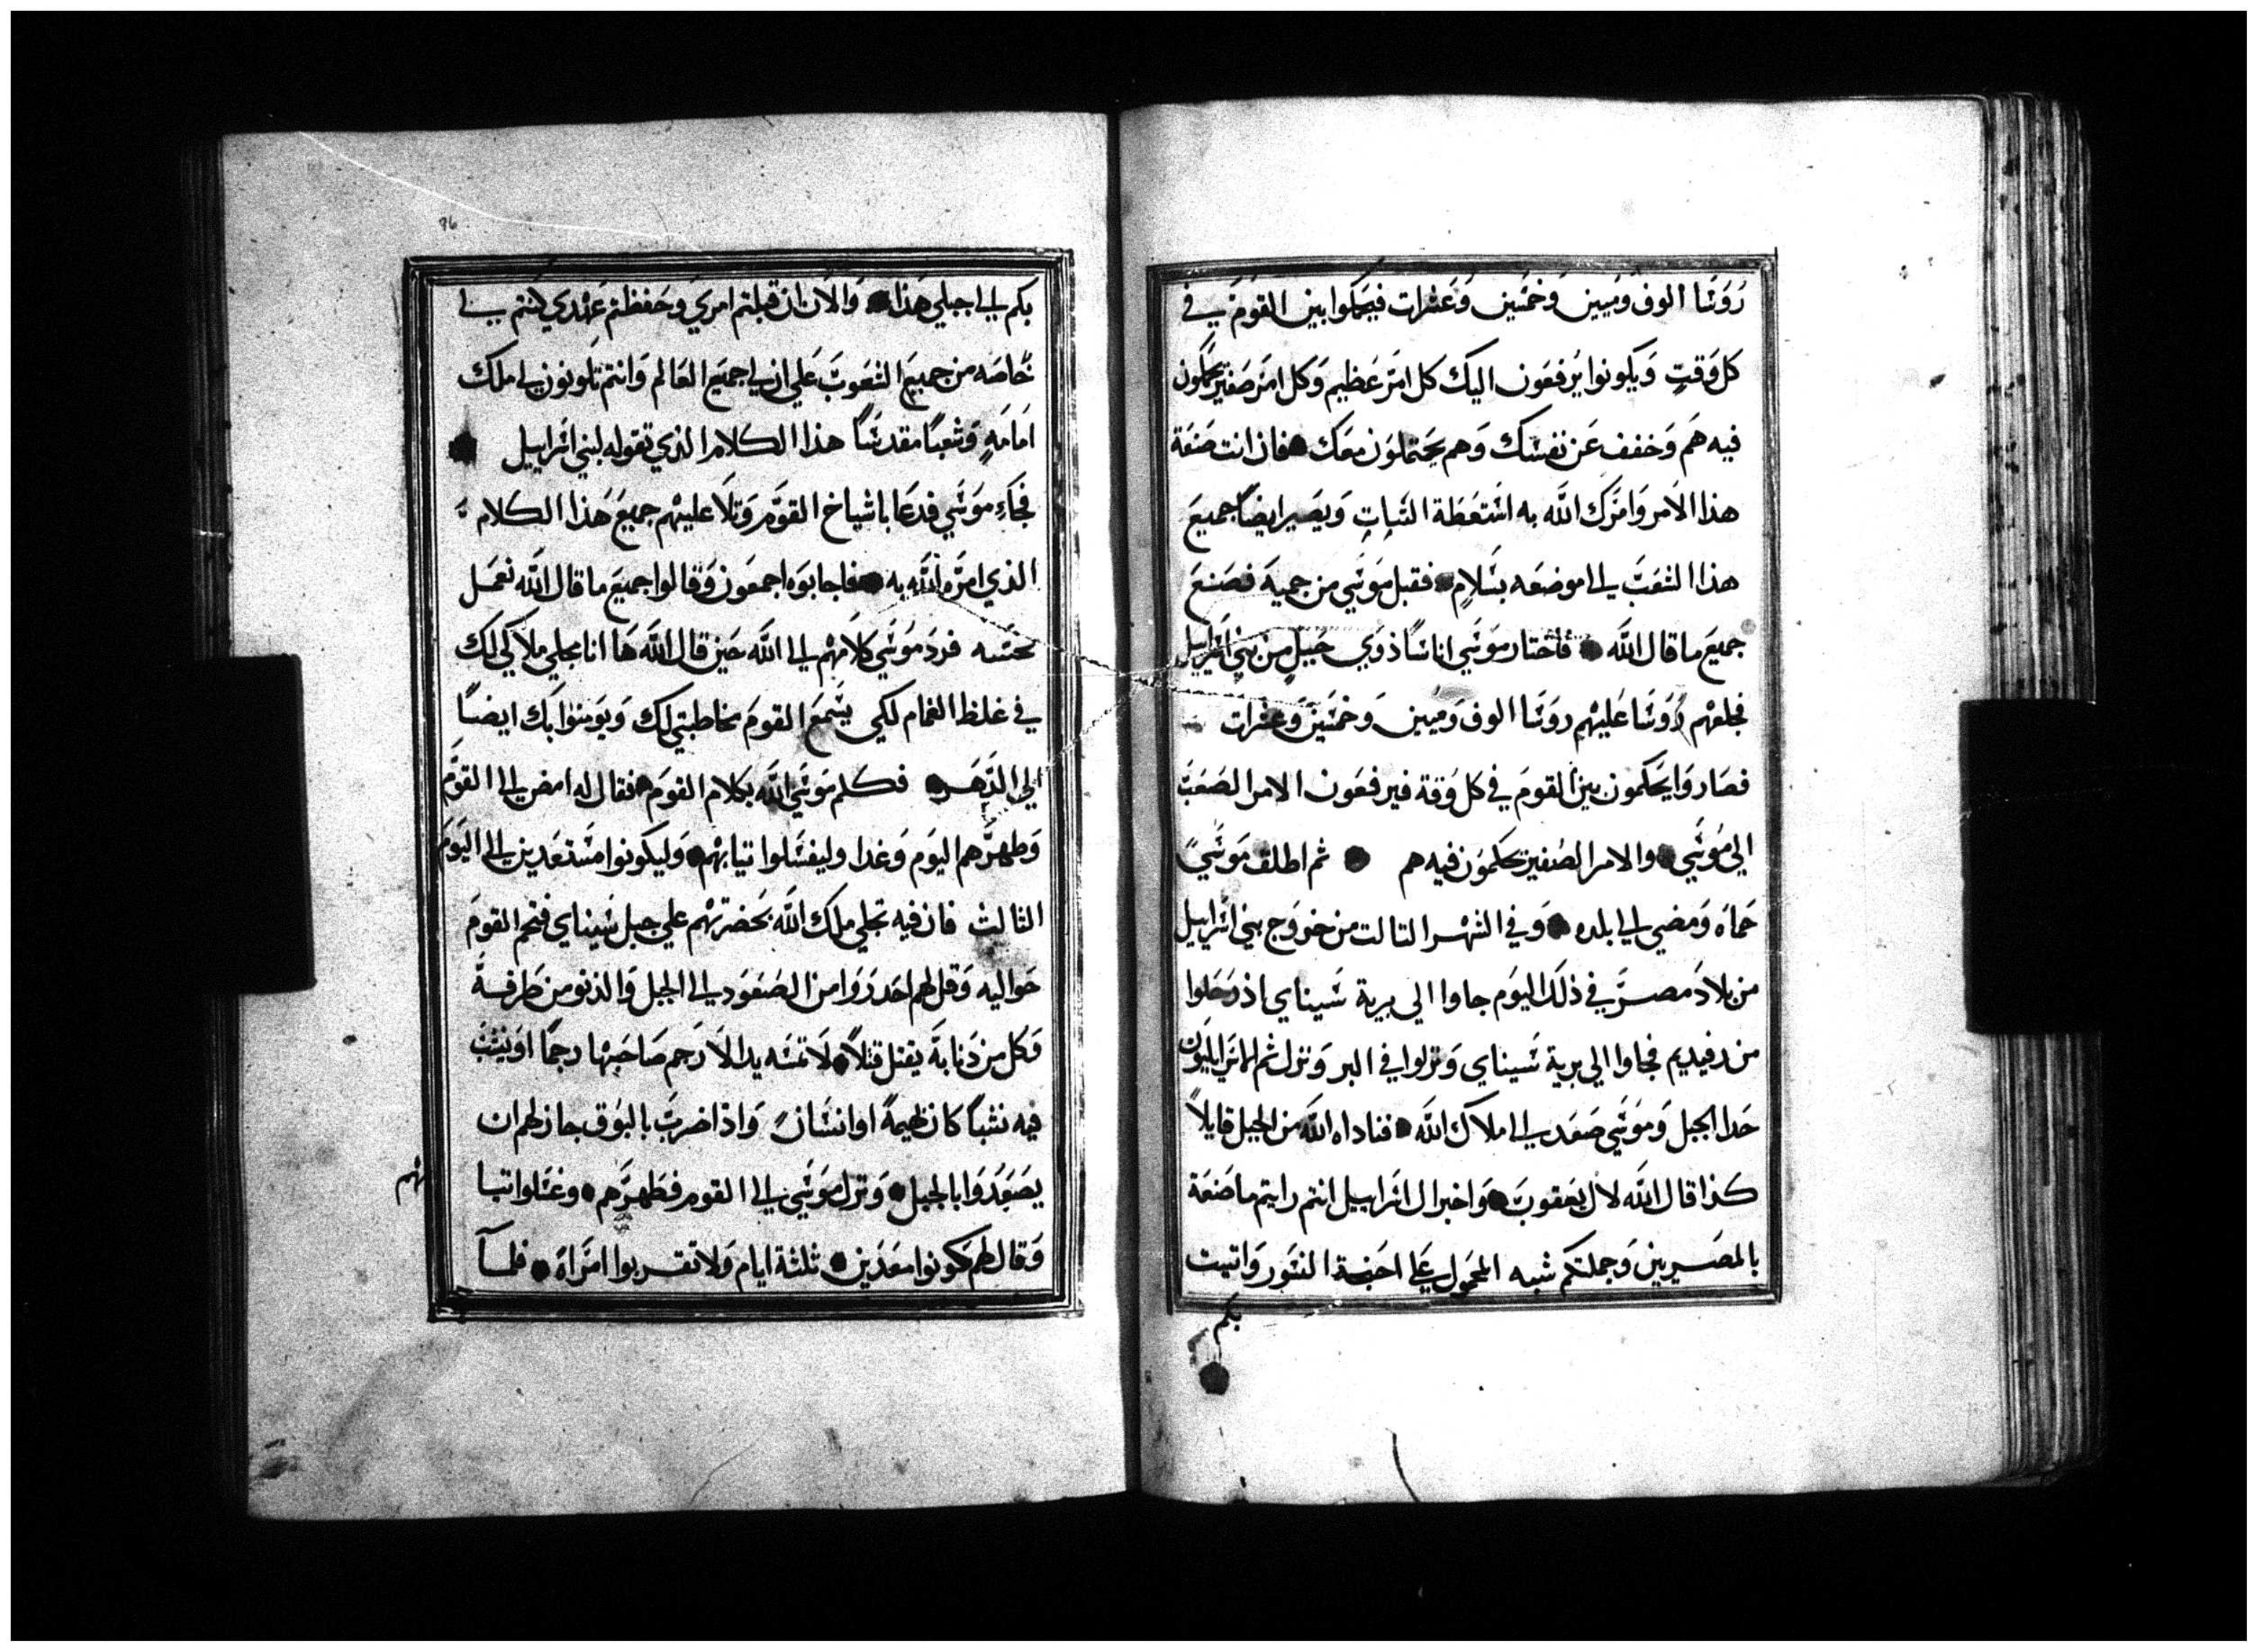 رُوَسَا الوف وَميين وَخمسَين وَعشرات فيحكموا بين القومَ في
كل وَقتٍ وَيكونوا يرفعَون اليك كل امرَ عَظيم وَكل امرَ صَغير يحكمون
فيه همَ وَخفف عَن نفسَك وَهم يحَتملوَن معَك فان انت صَنعَة
هذا الاَمر وَامرَك اللَّه به استَعَطَة الثبات وَيصَير ايضاً جميعَ
هذا الشعَبَ الى موضعَه بسَلامٍ فقبل مَوسَي من حميهَ فصَنعَ
جميعَ ما قال اللَّه فأختار موَسَي اناسَاً ذوَي حَيلٍ من بني اسَرايل
فجلعهْم رُوَسَا عَليهْم روَسَا الوف وَميين وَخمسَين وَعشرات
فصَاروَا يحَكمون بين القومَ في كل وَقة فيرفعَون الامر الصَعَبَ
الي مُوسَي والامر الصَغير يحكموَن فيه هم ثم اطلق مَوسَيَ
حَماهَ وَمضي الي بلده وَفي الشهْر التالت من خروَج بني اسَراييل
من بلادَ مصرَ في ذلَك اليوَم جاوا الي برية سَيناي اذ رَحَلوا
من رفيديم فجاوا الي برية سَيناي وَنزلوا في البر وَنزل ثم الاسَراييليوَن
حَدا الجبل وَموَسَي صَعَد الي ملاَك اللَّه فناداه اللَّه من الجبل قايلاً
كذا قال اللَّه لال يعَقوبَ وَاخبر ال اسَراييل انتم رايتم ما صَنعَة
بالمصَريين وَحملتكم شبه المحَمول عَلي اجَنحَة النسَور وَاتيت
بكم
بكم الي اجبلي هَذا وَالاَن ان قبلتم امريَ وحَفظتم عَهْدي كنتم لي
خَاصَه من جميعَ الشعَوبَ عَلي ان لي جميَع العَالم وَانتم تكونون لي ملك
امَامَهٍ وَشعَباً مقدسَاً هذا الكلام الذي تقوله لبني اسَراييل
فجَاءِ موَسَي فدعَا باشياخ القوَم وَتلاَ عليهْم جميعَ هَذا الكلام
الذي امرَه اللَّه به فاجابوَه اجمعَون وَقالوا جميَعَ ما قال اللَّه نعَمَل
بحسَبه فردَ موَسَي كلاَمهْم الي اللَّه حَين قال اللَّه هَا انا مجلي ملاَكي لك
في غلظ الغمام لكي يسَمعَ القومَ مخاطبتي لك وَيوَمنوا بك ايضاً
الي الدَهَر فكلم موَسَي اللَّه بكلام القومَ فقال له امض الي القوَم
وَطهرَهم اليوَم وَغدا وليغسَلوا تيابهْم وَليكونوا مسَتعَدين الي اليوَم
الثالث فان فيه تجلي ملك اللَّه بحَضرتهْم علي جبل سَيناي فتخم القومَ
حَواليه وَقل لهم احَدروَا من الصَعَوَد الي الجبل وَالدنو من طَرفهَ
وَكل من دَنا بهَ يقتل قتلاً لاَ تمسَه يد الاَ رَجم صَاحَبهْا رجماً اوَ ينشَبَ
فيه نشباً كان بهيمةً او انسَانً وَاذا ضربَ بالبوَق جاز لهم ان
يصَعَدُوَا بالجبل وَنزل موَسَي الي القوم فطَهرَهم وغسَلوا تيا
بهم
وَقال لهم كونوا معَدَين ثلثة ايام وَلا تقربوا امرَاةَ فلمآ